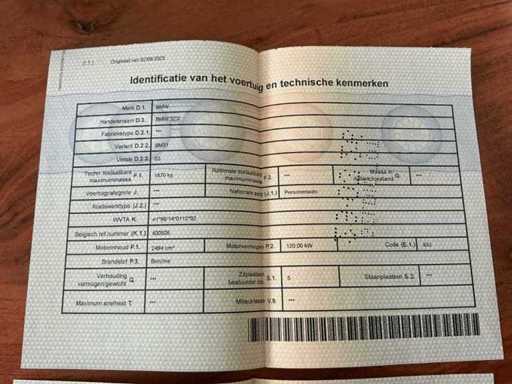 (I.1.) Origineel van 02/08/2023
Identificatie van het voertuig en technische kenmerken
Merk D.1. BMW
Handelsnaam D.3.
Fabriekstype D.2.1. ---
Variant D.2.2. BM31
Versie D.2.3.
Techn. toelaatbare maximummassa F.1. 1870 kg Nationale toelaatbare maximummassa F.2. --- Massa in G.
Voertuigcategorie J. --- Nationale aard (J.1.) Personenauto
Koetswerktype (J.2.) ---
WVTA K.
Belgisch ref.nummer (K.1.)
Motorinhoud P.1. 2494 cm³ Motorvermogen P.2. 120.00 kW Code (E.1.)
Brandstof P.3. Benzine
Verhouding vermogen/gewicht Q. --- Zitplaatsen bestuurder inc. S.1. 5 Staanplaatsen S.2. ---
Maximum snelheid T. --- Milieuklasse V.9. ---